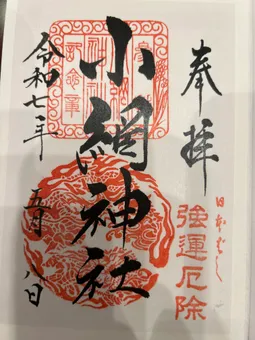 奉拝
日本ばし
強運厄除
小網神社
令和七年 五月 八日